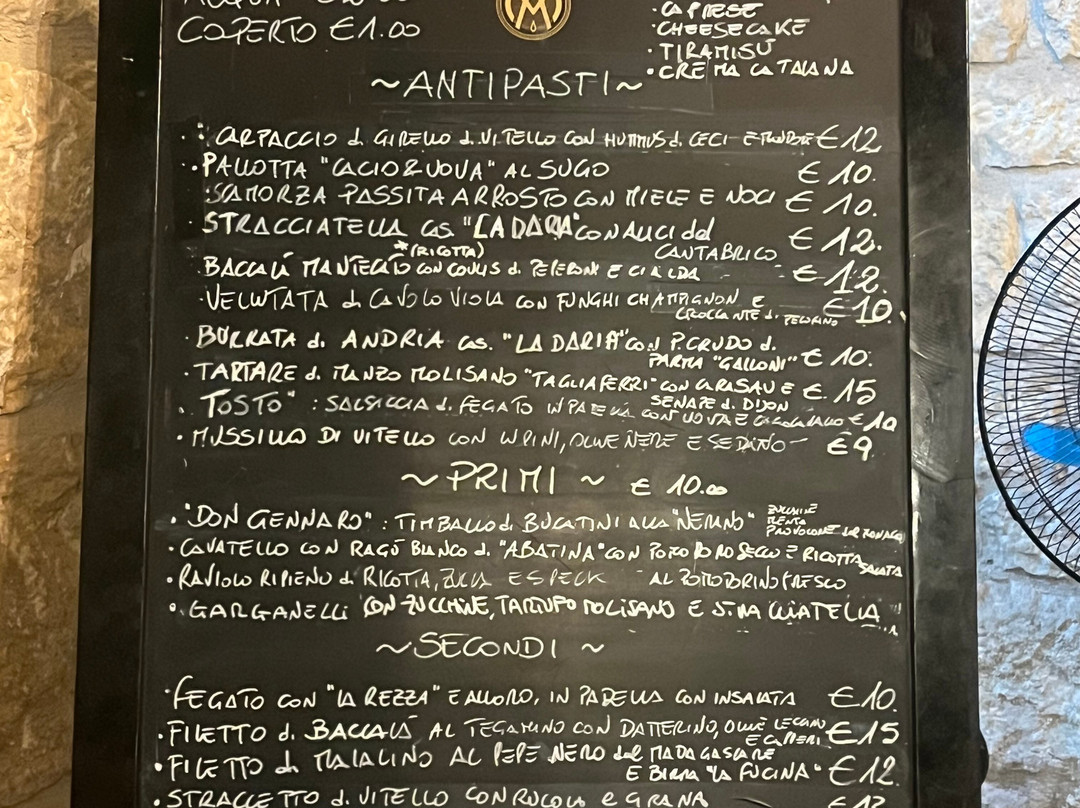 COPERTO €1.00
M
CAPRESE
CHEESECAKE
• TIRAMISÙ
• CREMA CATALANA
~ANTIPASTI~
• CARPACCIO di GIRELLO di VITELLO CON HUMMUS di CECI E €12
• PALLOTTA "CACIO & UOVA" AL SUGO €10.
SCAMORZA PASSITA ARROSTO CON MIELE E NOCI €10.
• STRACCIATELLA cas. "LA DARIA" CON ALICI del €12.
CANTABRICO
*(RICOTTA)
BACCALÀ MANTECATO CON COULIS di PEPERONE E CIALDA - - €12.
VELLUTATA di CAVOLO VIOLA CON FUNGHI CHAMPIGNON E €10.
CROCCANTE di PECORINO
• BURRATA di ANDRIA cas. "LA DARIA" CON P.CRUDO di
PARMA "GALLONI" €10.
• TARTARE di MANZO MOLISANO "TAGLIAFERRI" CON CARASAU E €15
SENAPE di DIJON
• TOSTO" : SALSICCIA di FEGATO IN PADELLA CON UOVA E €10
• MUSSILLO DI VITELLO CON LUPINI, OLIVE NERE E SEDANO - €9
~PRIMI ~ €10.00
• "DON GENNARO" : TIMBALLO di BUCATINI ALLA "NERANO" ZUCCHINE
MENTA
PROVOLONE DEL MONACO
• CAVATELLO CON RAGÙ BIANCO di "ABATINA" CON POMODORO SECCO E RICOTTA
SALATA
• RAVIOLO RIPIENO di RICOTTA, ZUCCA E SPECK AL POMODORINO FRESCO
• GARGANELLI CON ZUCCHINE, TARTUFO MOLISANO E STRACCIATELLA
~SECONDI ~
• FEGATO CON "LA REZZA" E ALLORO, IN PADELLA CON INSALATA €10.
• FILETTO di BACCALÀ AL TEGAMINO CON DATTERINO, OLIVE LECCINO €15
E CAPPERI
• FILETTO di MAIALINO AL PEPE NERO del MADAGASCAR
E BIRRA "LA FUCINA" €12.
• STRACCETTO di VITELLO CON RUCOLA e GRANA